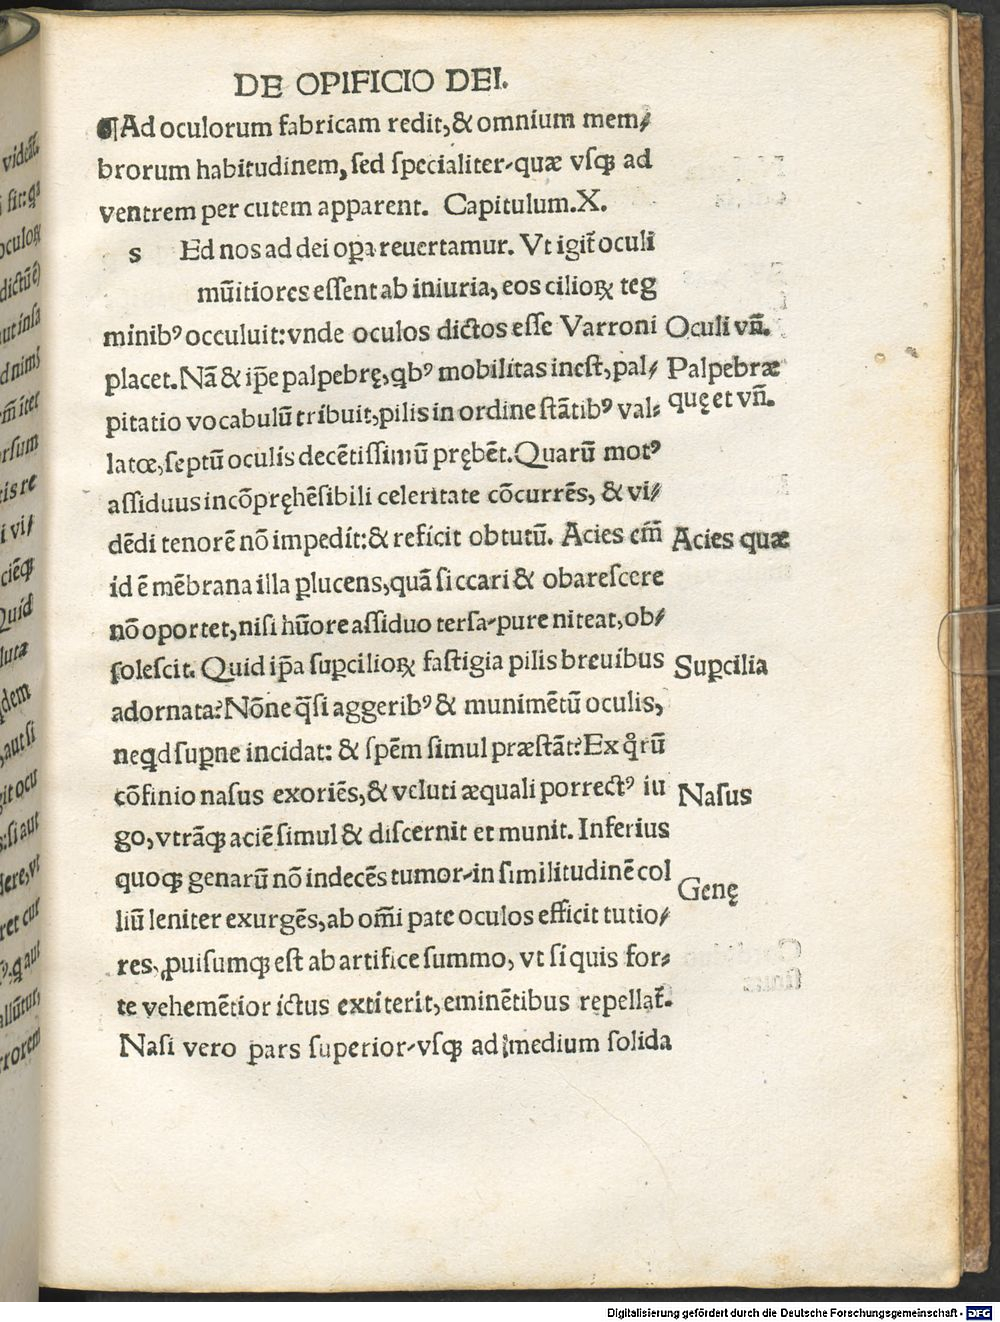 DE OPIFICIO DEI.
¶Ad oculorum fabricam redit,& omnium mem/
brorum habitudinem, ſed ſpecialiter quæ vſqꝫ ad
ventrem per cutem apparent. Capitulum.X.
s Ed nos ad dei oꝑa reuertamur. Vt igit᷑ oculi
mūitiores eſſent ab iniuria, eos cilioꝝ teg
minibꝰ occuluit: vnde oculos dictos eſſe Varroni
Oculi vñ.
placet. Nā & ip̄e palpebrę, qbꝰ mobilitas ineſt, pal/
Palpebræ
quę et vñ.
pitatio vocabulū tribuit, pilis in ordine ſtātibꝰ val/
latœ, ſeptū oculis decētiſſimū prębēt. Quarū motꝰ
aſſiduus incōpręhēſibili celeritate cōcurrēs, & vi/
dēdi tenorē nō impedit: & reficit obtutū. Acies em̄
Acies quæ
id ē mēbrana illa ꝑlucens, quā ſiccari & obareſcere
nō oportet, niſi hūore aſſiduo terſa pure niteat, ob/
ſoleſcit. Quid ip̄a ſuꝑcilioꝝ faſtigia pilis breuibus
Suꝑcilia
adornata? Nōne q̄ſi aggeribꝰ & munimētū oculis,
neqd ſuꝑne incidat: & ſpēm ſimul præſtāt? Ex qͦrū
cōfinio naſus exoriēs, & veluti æquali porrectꝰ iu
Naſus
go, vtrāqꝫ aciē ſimul & diſcernit et munit. Inferius
quoqꝫ genarū nō indecēs tumor in ſimilitudinē col
Genę
liū leniter exurgēs, ab om̄i pate oculos efficit tutio/
res, ꝓuiſumqꝫ eſt ab artifice ſummo, vt ſi quis for/
te vehemētior ictus extiterit, eminētibus repellat᷑.
Naſi vero pars ſuperior vſqꝫ ad medium ſolida
Digitalisierung gefördert durch die Deutsche Forschungsgemeinschaft - DFG